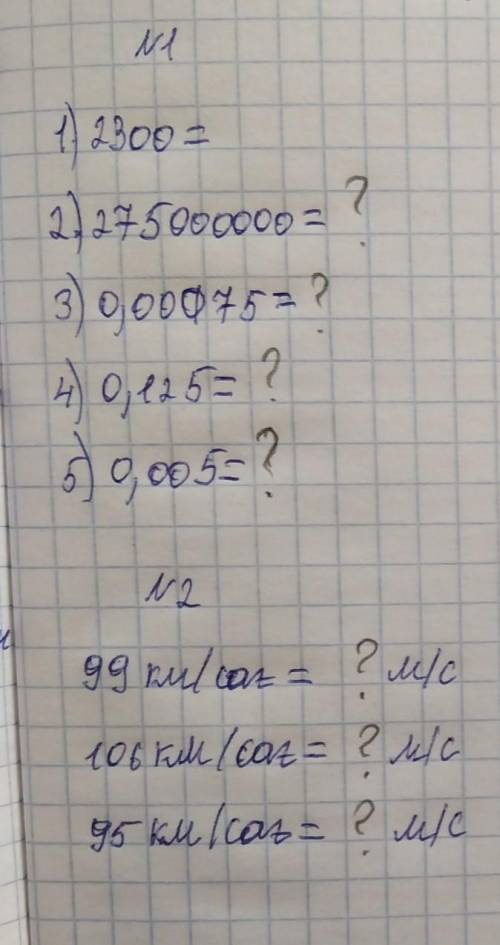 N1
1) 2300=
2) 275000000= ?
3) 0,00075= ?
4) 0,125= ?
5) 0,005= ?
N2
99 км/саг = ? м/с
106 км/саг = ? м/с
95 км/саг = ? м/с